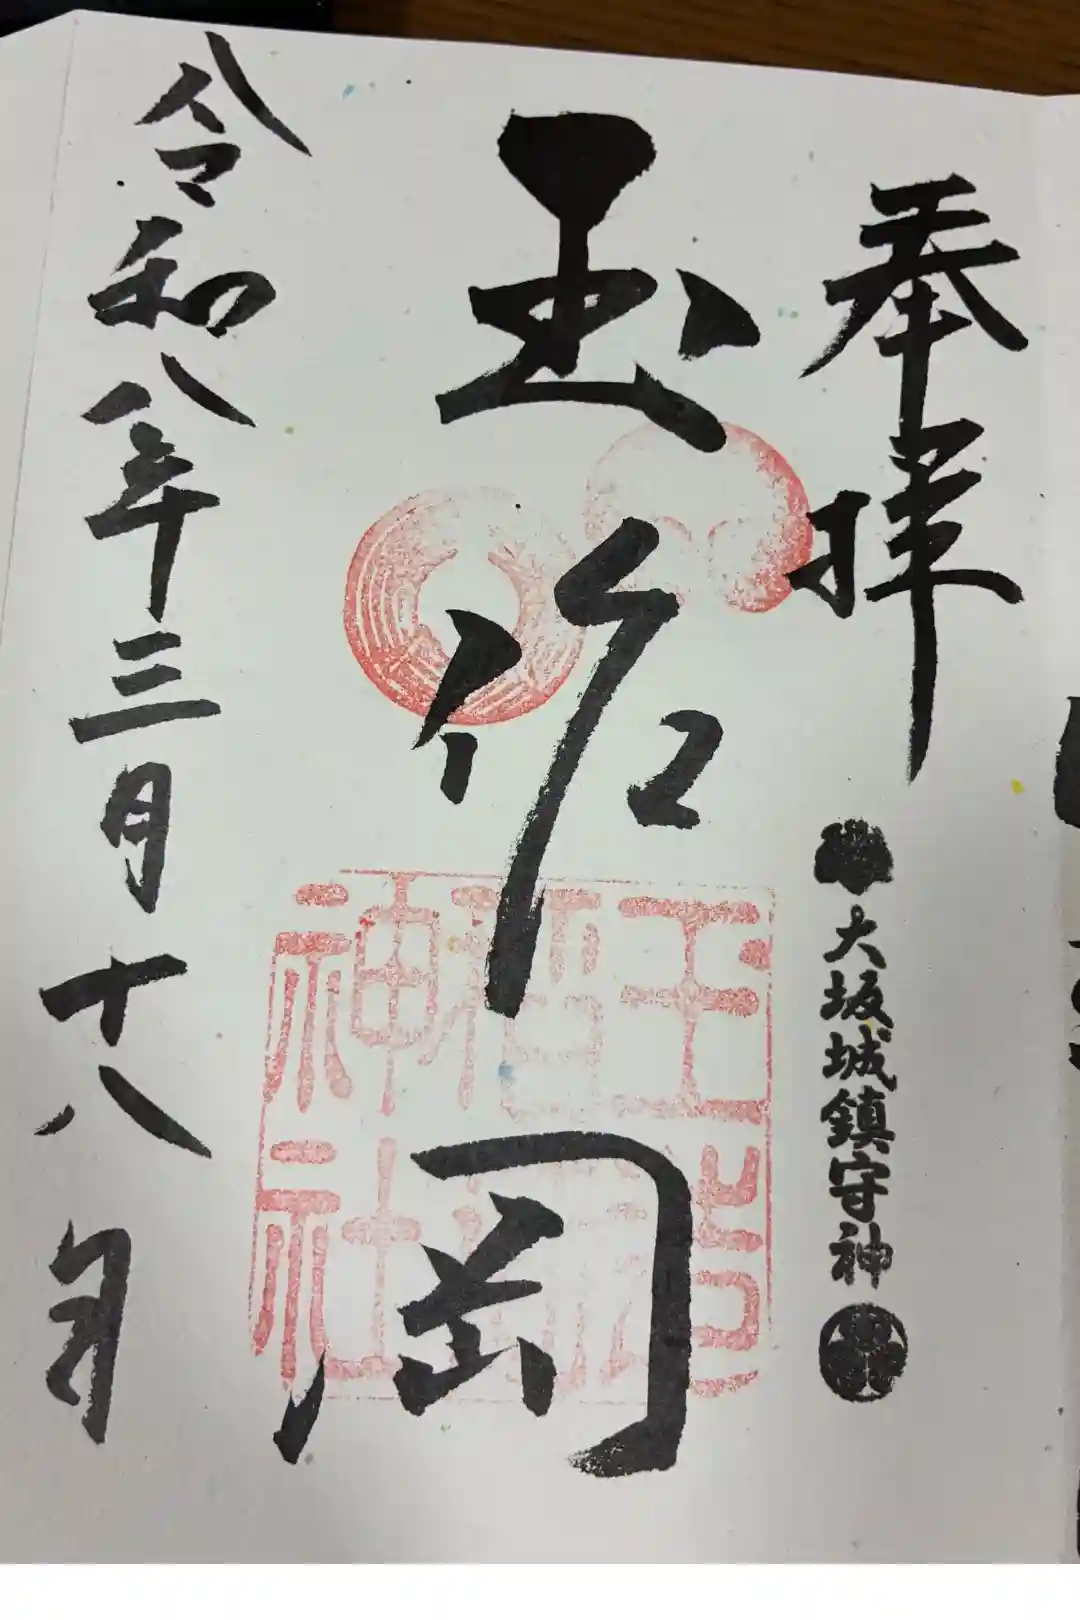 奉拝
大坂城鎮守神
玉作岡
玉造稲荷神社
令和八年三月十八日